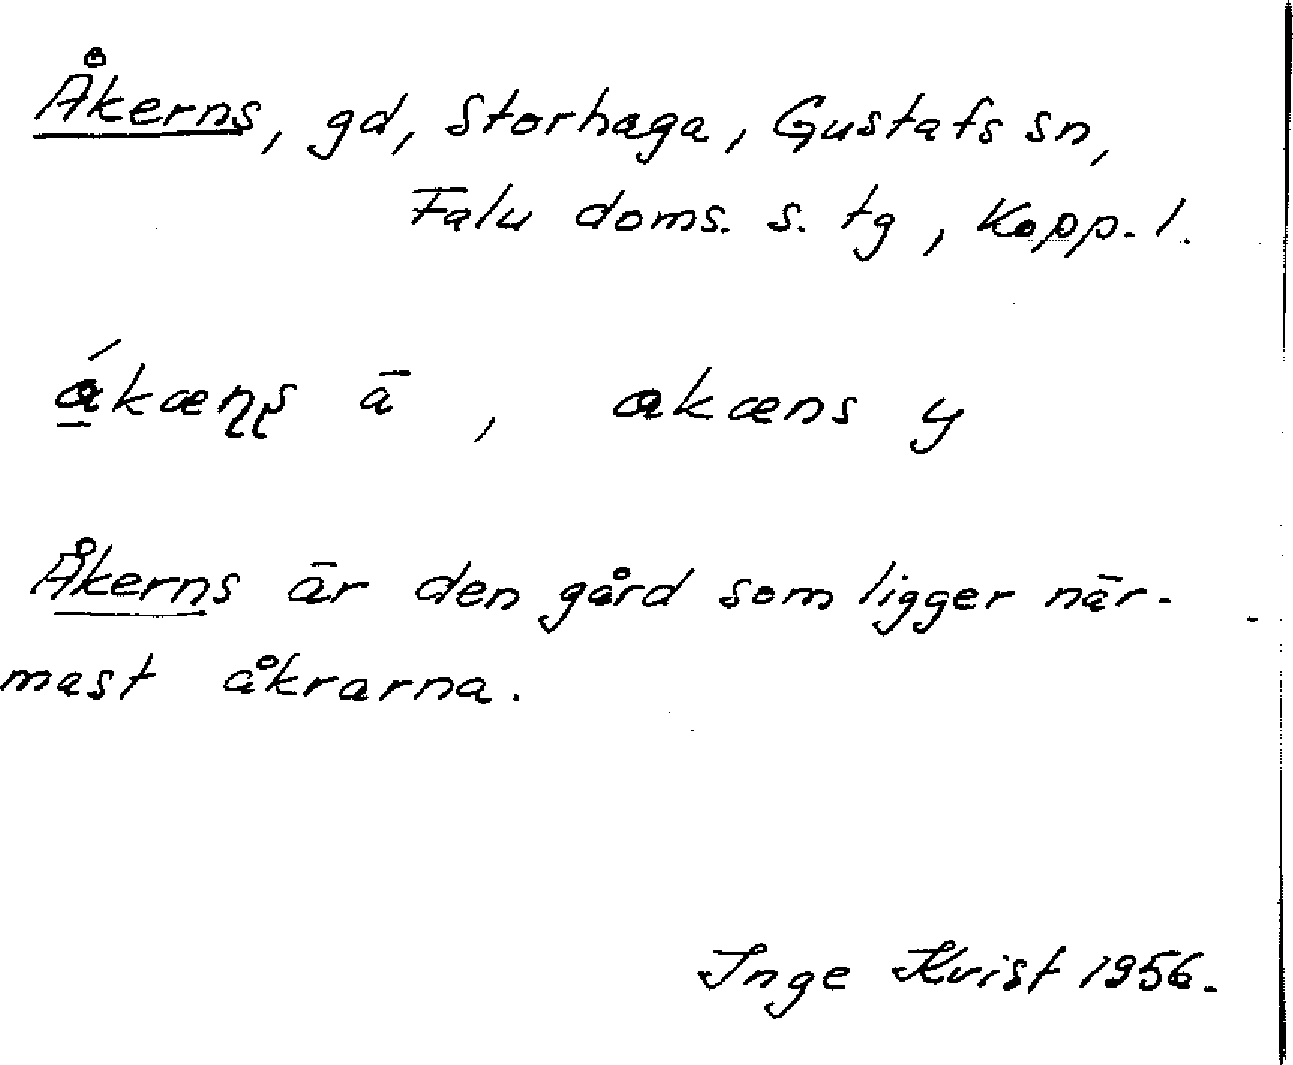 Åkerns, gd, Storhaga, Gustafs sn,
Falu doms. s. tg, Kopp. l.
ákæɳʂ ä, akæns y
Åkerns är den gård som ligger när-
mast åkrarna.
Inge Kvist 1956.